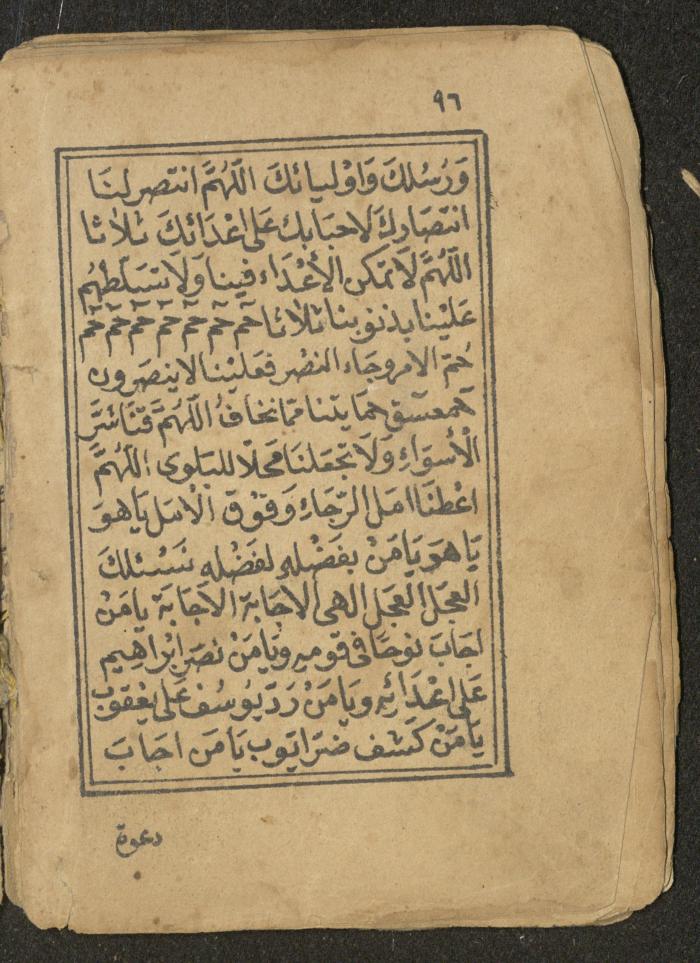 ٩٦
وَرُسُلكَ وَاوْليائكَ اللّهُمَّ انتصر لنَا
انتصَارك لاحبَابك عَلى اعْدَائكَ ثلاثا
اللّهُمَّ لاَ تمكن الأعْدَاء فينا وَلاَ تسَلطهُم
عَليْنا بذنوبنا ثلاثا حٓم حٓم حٓم حٓم حٓم حٓم حٓم
حُمّ الامر وجَاء النصْر فعَليْنا لا ينصَرون
حمعسق حمايتنا ممّا نخافُ اللّهُمَّ قنَا شرَّ
الْأسوَاءِ وَلاَ تجعَلنَا محَلاّ للبَلوى اللّهُمَّ
اعْطنَا امَل الرّجَاءِ وَفوْق الامَل يَا هوَ
يَا هوَ يَا مَنْ بفَضْلهِ لفَضْلهِ نسْئلكَ
العجَل العجَل الهى الاجَابة الاجَابَة يا مَنْ
اجَابَ نوحًا فى قومهِ ويَا مَنْ نصَر ابْرَاهيم
عَلى اعْدَائهِ ويَا مَنْ رَدّ يوُسُف عَلى يعْقوب
يَا مَنْ كشف ضرّ ايّوب يَا مَن اجَابَ
دعوة